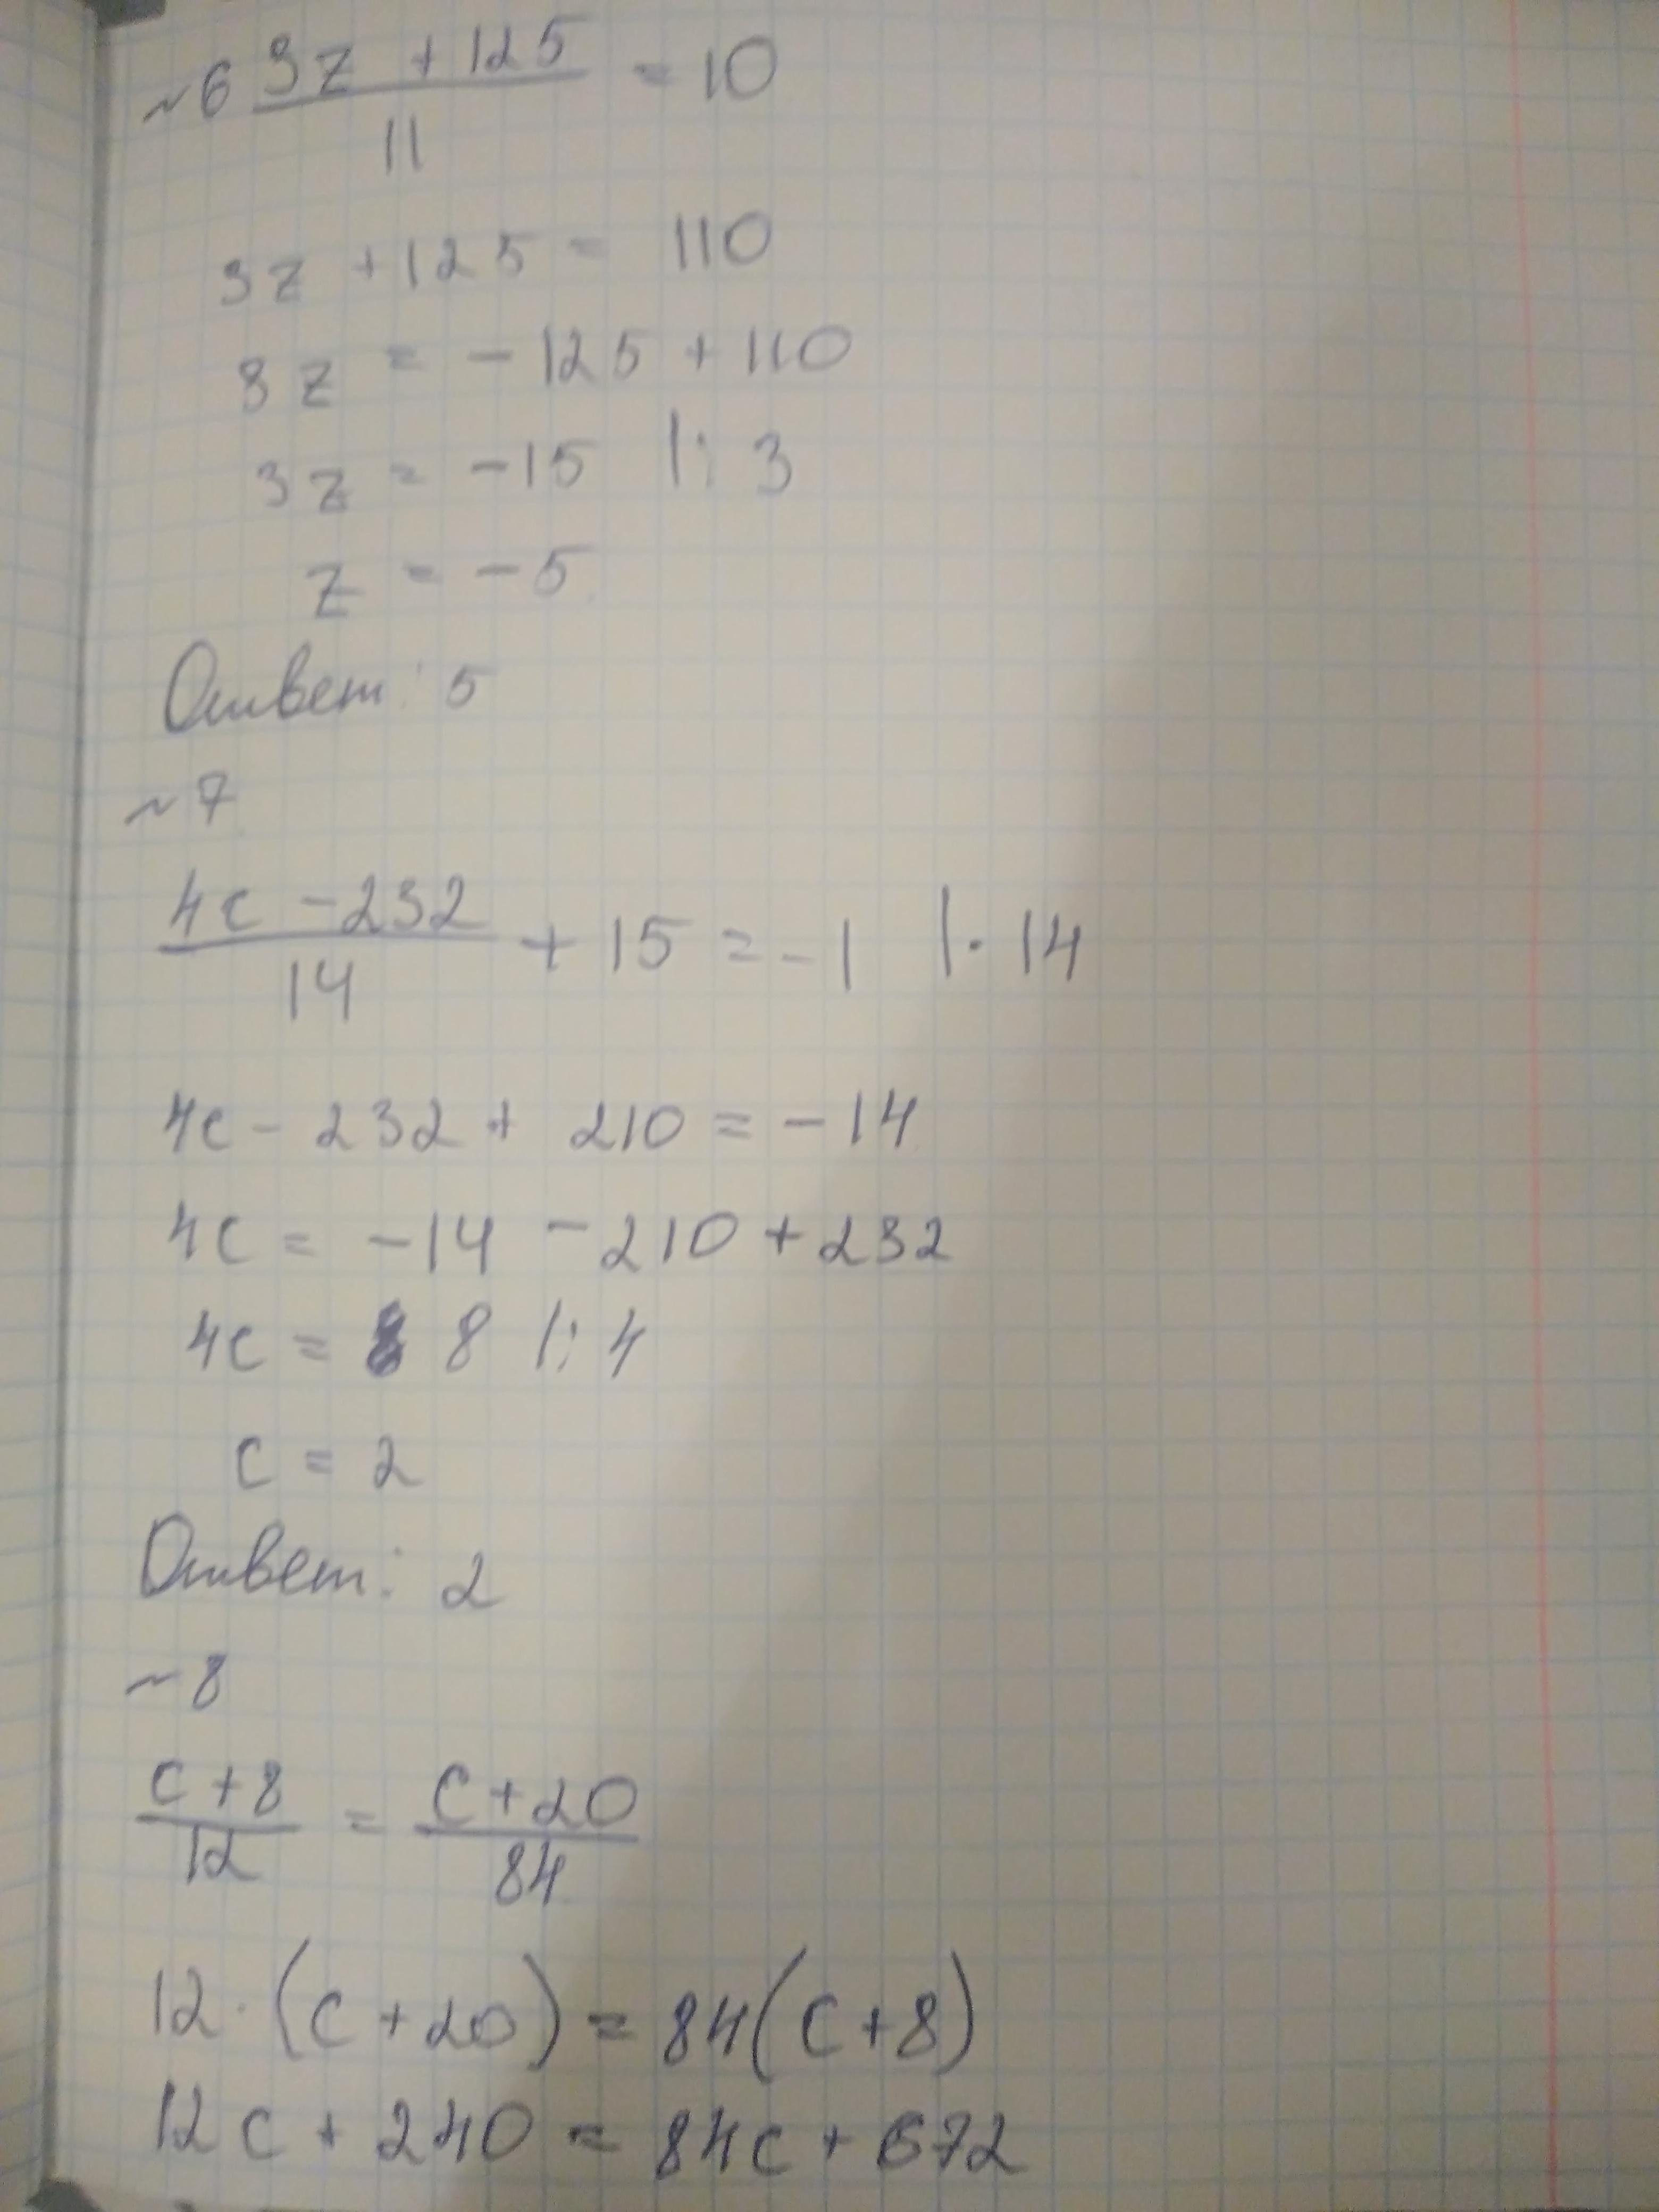 ~6 3z + 125 / 11 = 10
3z + 125 = 110
3z = - 125 + 110
3z = -15 |: 3
z = -5
Ответ: 5
~7
4c - 232 / 14 + 15 = -1 |· 14
4c - 232 + 210 = -14
4c = -14 - 210 + 232
4c = 8 |: 4
c = 2
Ответ: 2
~8
c + 8 / 12 = c + 20 / 84
12 · (c + 20) = 84(c + 8)
12c + 240 = 84c + 672